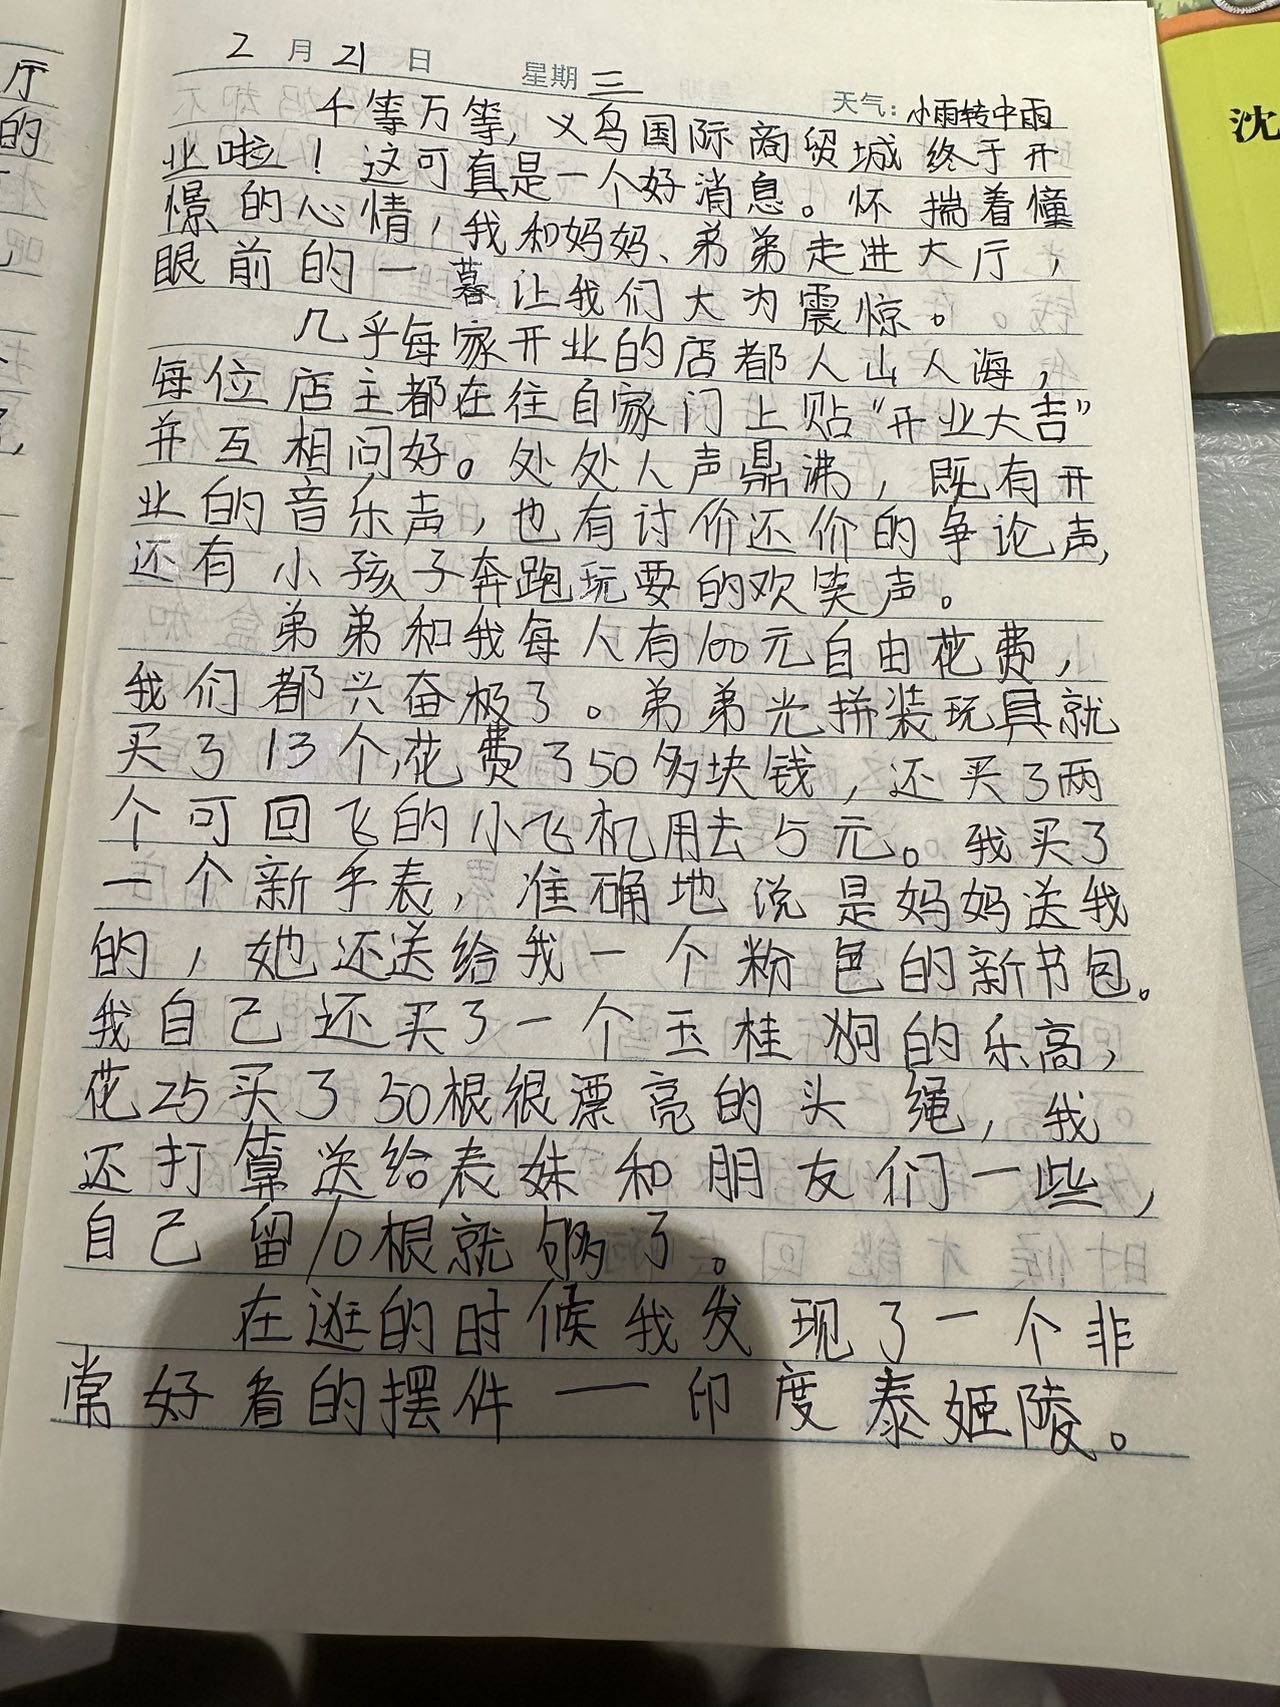 2月21日 星期三 天气：小雨转中雨
千等万等，义乌国际商贸城终于开
业啦！这可真是一个好消息。怀揣着憧
憬的心情，我和妈妈、弟弟走进大厅，
眼前的一暮让我们大为震惊。
几乎每家开业的店都人山人海，
每位店主都在往自家门上贴“开业大吉”
并互相问好。处处人声鼎沸，既有开
业的音乐声，也有讨价还价的争论声，
还有小孩子奔跑玩耍的欢笑声。
弟弟和我每人有100元自由花费，
我们都兴奋极了。弟弟光拼装玩具就
买了13个花费了50多块钱，还买了两
个可回飞的小飞机用去5元。我买了
一个新手表，准确地说是妈妈送我
的，她还送给我一个粉色的新书包。
我自己还买了一个玉桂狗的乐高，
花25买了50根很漂亮的头绳，我
还打算送给表妹和朋友们一些，
自己留10根就够了。
在逛的时候我发现了一个非
常好看的摆件——印度泰姬陵。
厅
的
沈